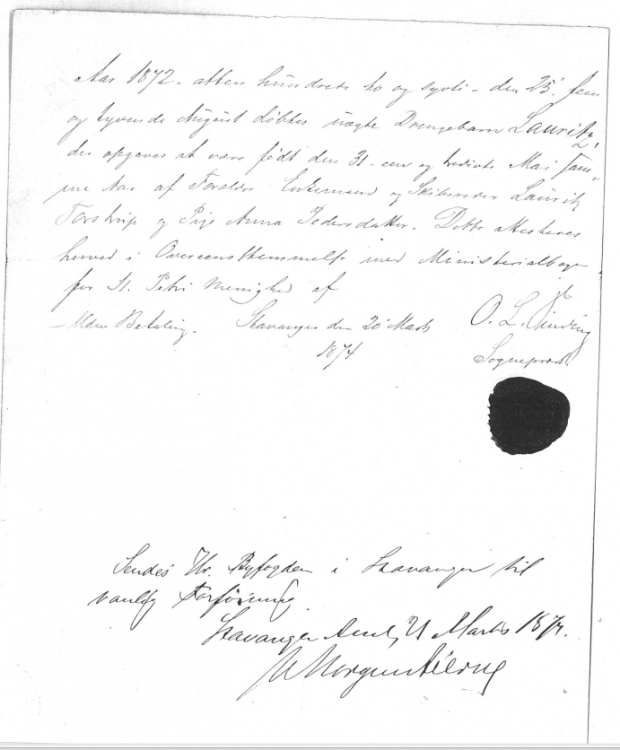 Aar 1872 - atten hundrede to og sytti - den 25' fem
og tyvende August døbtes uægte Drengebarn Lauritz,
der opgaves at være født den 31 - een og tredivte Mai samme
Aar af Forældre Enkemand og Skibsreder Lauritz
Torstrup og Pige Anna Pedersdatter. Dette attesteres
herved i Overeensstemmelse med Ministerialbogen
for St. Petri Menighed af
- Uden Betaling. Stavanger den 20 Marts O. L.
1874 Sognepræst.
Sendes Hr. Byfogden i Stavanger til
vanlig Forføining
Stavanger Amt, 21 Marts 1874.